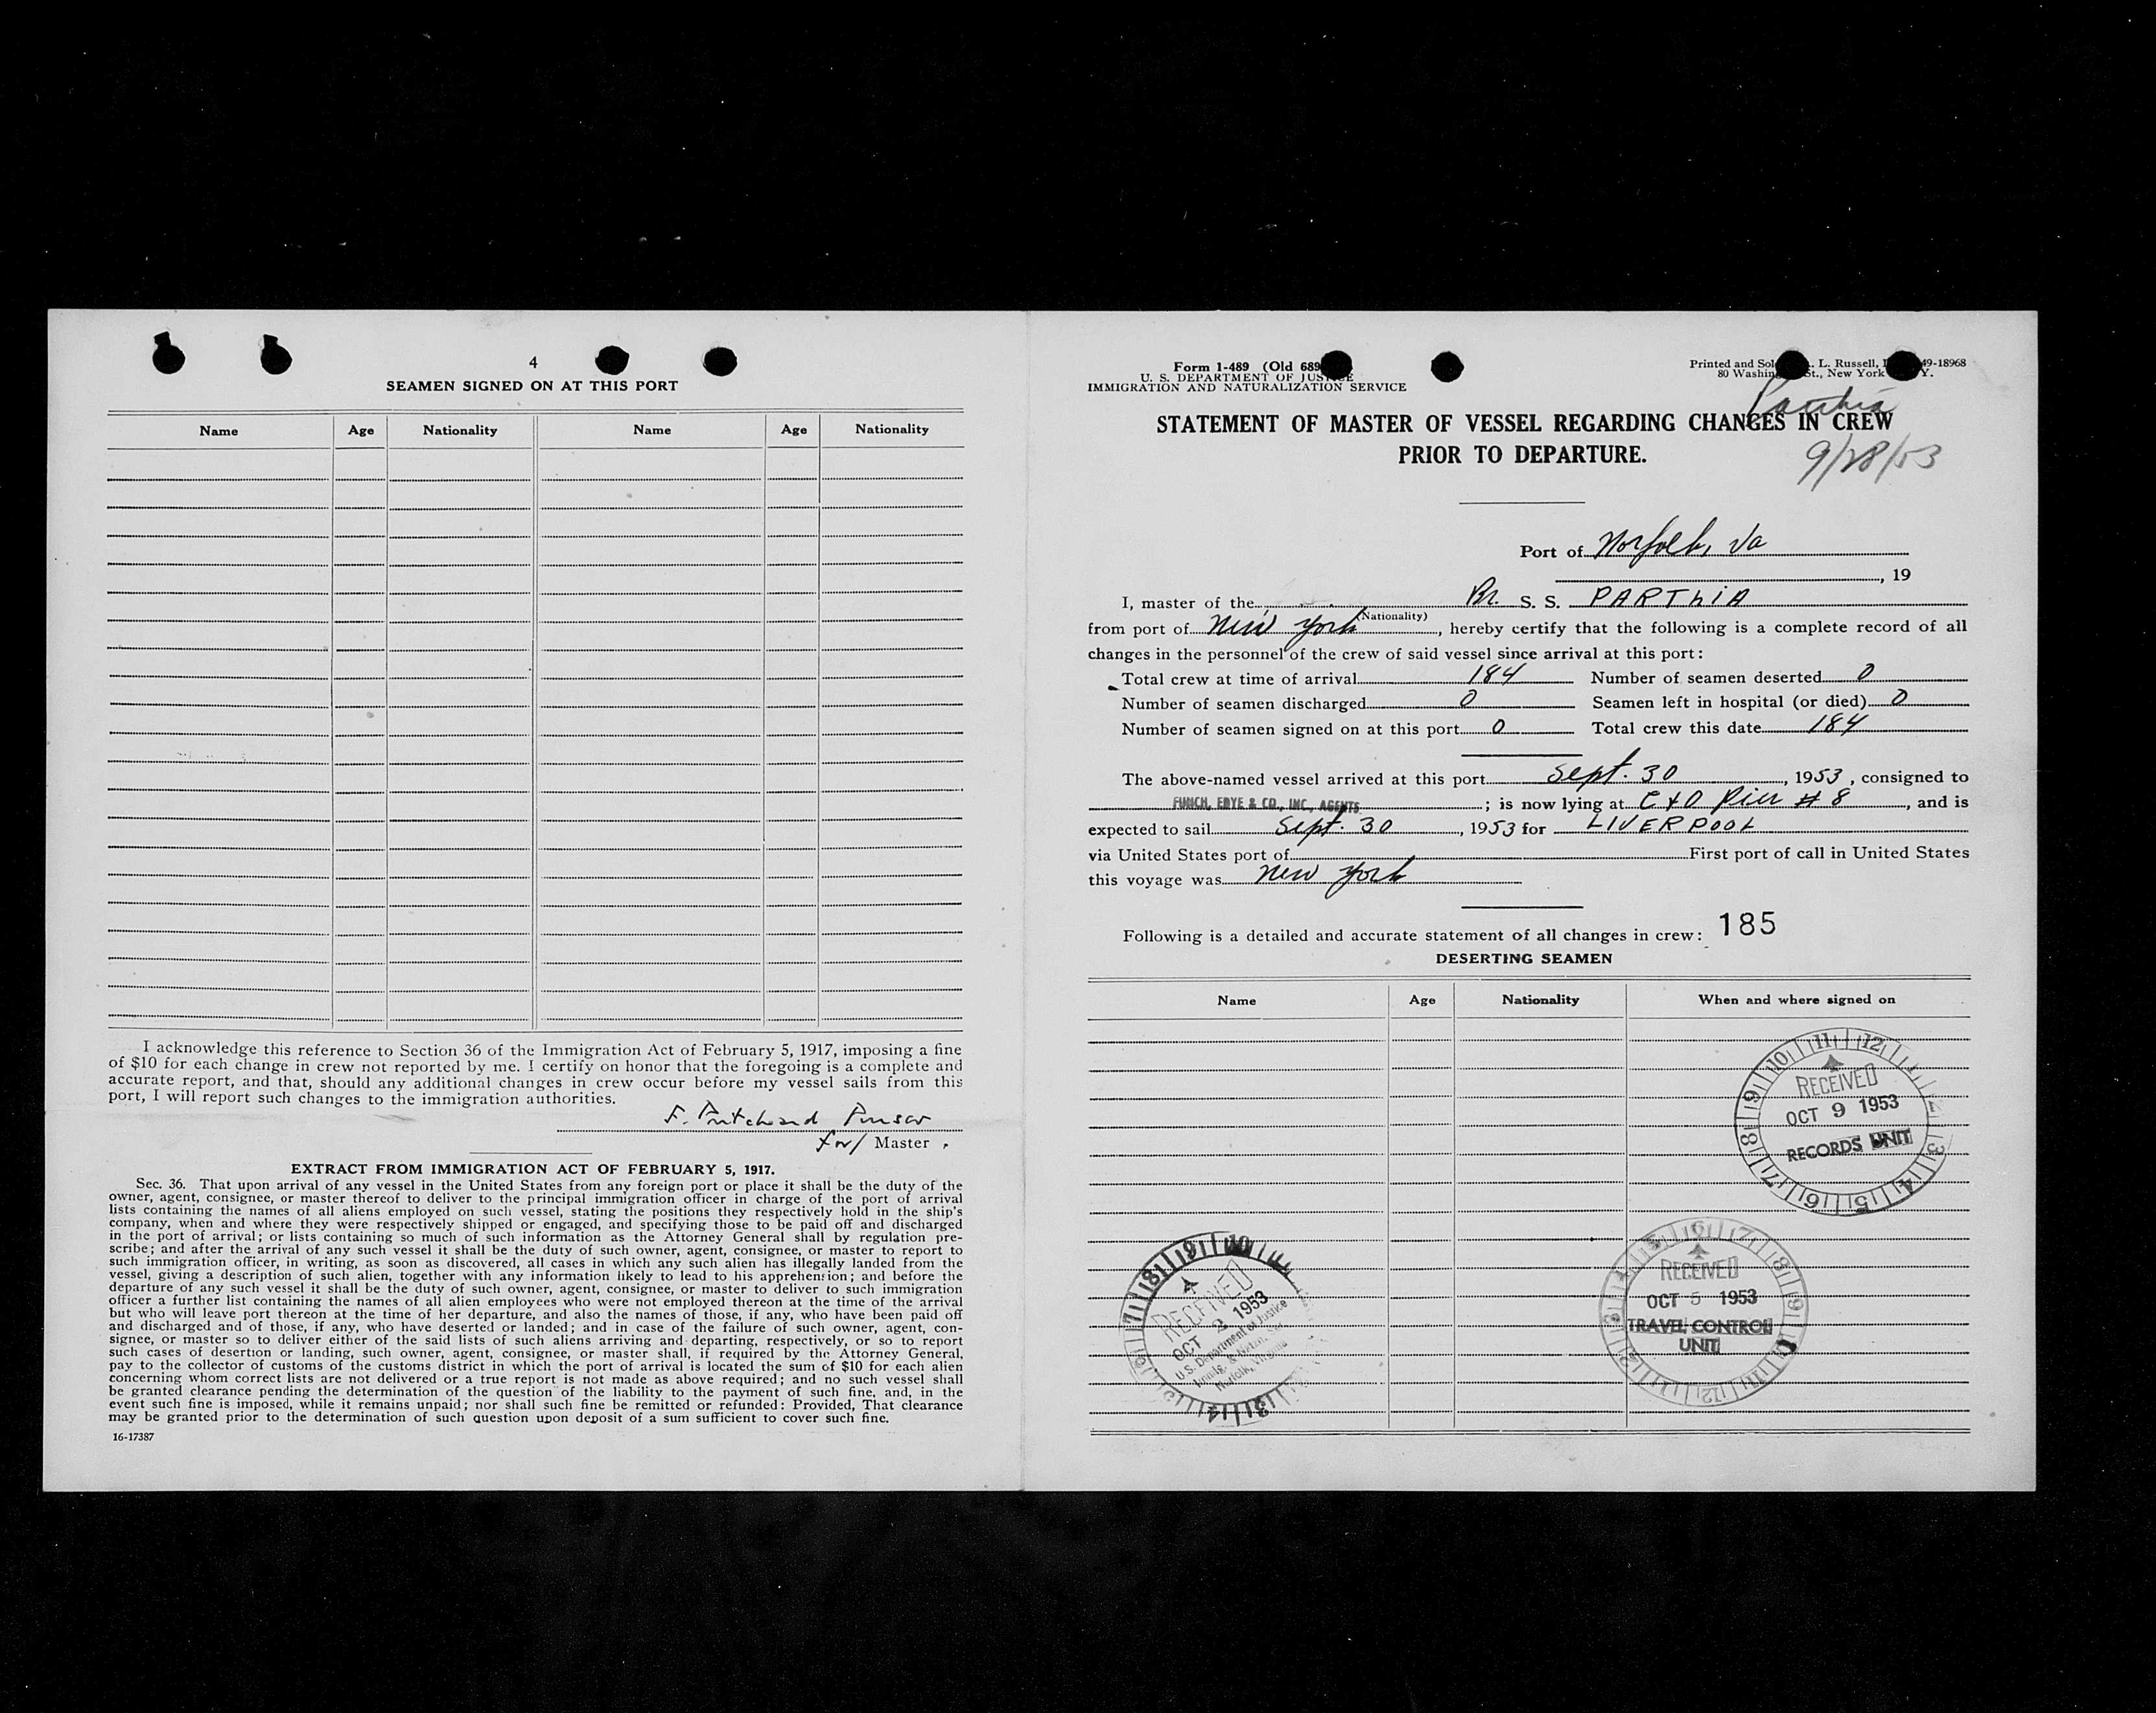 4
SEAMEN SIGNED ON AT THIS PORT
Name Age Nationality Name Age Nationality
I acknowledge this reference to Section 36 of the Immigration Act of February 5, 1917, imposing a fine
of $10 for each change in crew not reported by me. I certify on honor that the foregoing is a complete and
accurate report, and that, should any additional changes in crew occur before my vessel sails from this
port, I will report such changes to the immigration authorities.
F. Pritchard Purser
for/ Master.
EXTRACT FROM IMMIGRATION ACT OF FEBRUARY 5, 1917.
Sec. 36. That upon arrival of any vessel in the United States from any foreign port or place it shall be the duty of the
owner, agent, consignee, or master thereof to deliver to the principal immigration officer in charge of the port of arrival
lists containing the names of all aliens employed on such vessel, stating the positions they respectively hold in the ship's
company, when and where they were respectively shipped or engaged, and specifying those to be paid off and discharged
in the port of arrival; or lists containing so much of such information as the Attorney General shall by regulation pre-
scribe; and after the arrival of any such vessel it shall be the duty of such owner, agent, consignee, or master to report to
such immigration officer, in writing, as soon as discovered, all cases in which any such alien has illegally landed from the
vessel, giving a description of such alien, together with any information likely to lead to his apprehension; and before the
departure of any such vessel it shall be the duty of such owner, agent, consignee, or master to deliver to such immigration
officer a further list containing the names of all alien employees who were not employed thereon at the time of the arrival
but who will leave port thereon at the time of her departure, and also the names of those, if any, who have been paid off
and discharged and of those, if any, who have deserted or landed; and in case of the failure of such owner, agent, con-
signee, or master so to deliver either of the said lists of such aliens arriving and departing, respectively, or so to report
such cases of desertion or landing, such owner, agent, consignee, or master shall, if required by the Attorney General,
pay to the collector of customs of the customs district in which the port of arrival is located the sum of $10 for each alien
concerning whom correct lists are not delivered or a true report is not made as above required; and no such vessel shall
be granted clearance pending the determination of the question of the liability to the payment of such fine, and, in the
event such fine is imposed, while it remains unpaid; nor shall such fine be remitted or refunded: Provided, That clearance
may be granted prior to the determination of such question upon deposit of a sum sufficient to cover such fine.
16-17387
Form 1-489 (Old 689
U. S. DEPARTMENT OF JUSTICE
IMMIGRATION AND NATURALIZATION SERVICE
Printed and Sol L. Russell, 49-18968
80 Washin St., New York Y.
Parthia
STATEMENT OF MASTER OF VESSEL REGARDING CHANGES IN CREW
PRIOR TO DEPARTURE.
9/28/53
Port of Norfolk, Va
, 19
I, master of the Br. S. S. PARTHIA
(Nationality)
from port of New York, hereby certify that the following is a complete record of all
changes in the personnel of the crew of said vessel since arrival at this port:
Total crew at time of arrival 184 Number of seamen deserted 0
Number of seamen discharged 0 Seamen left in hospital (or died) 0
Number of seamen signed on at this port 0 Total crew this date 184
The above-named vessel arrived at this port Sept. 30, 1953, consigned to
FUNCH, EDYE & CO., INC., AGENTS; is now lying at C & O Pier # 8, and is
expected to sail Sept. 30, 1953 for LIVERPOOL
via United States port of First port of call in United States
this voyage was New York
Following is a detailed and accurate statement of all changes in crew: 185
DESERTING SEAMEN
Name Age Nationality When and where signed on
RECEIVED
OCT 9 1953
RECORDS UNIT
RECEIVED
OCT 5 1953
TRAVEL CONTROL
UNIT
RECEIVED
OCT 2 1953
U.S. Department of Justice
Immig. & Natzn. Ser
Norfolk, Virginia